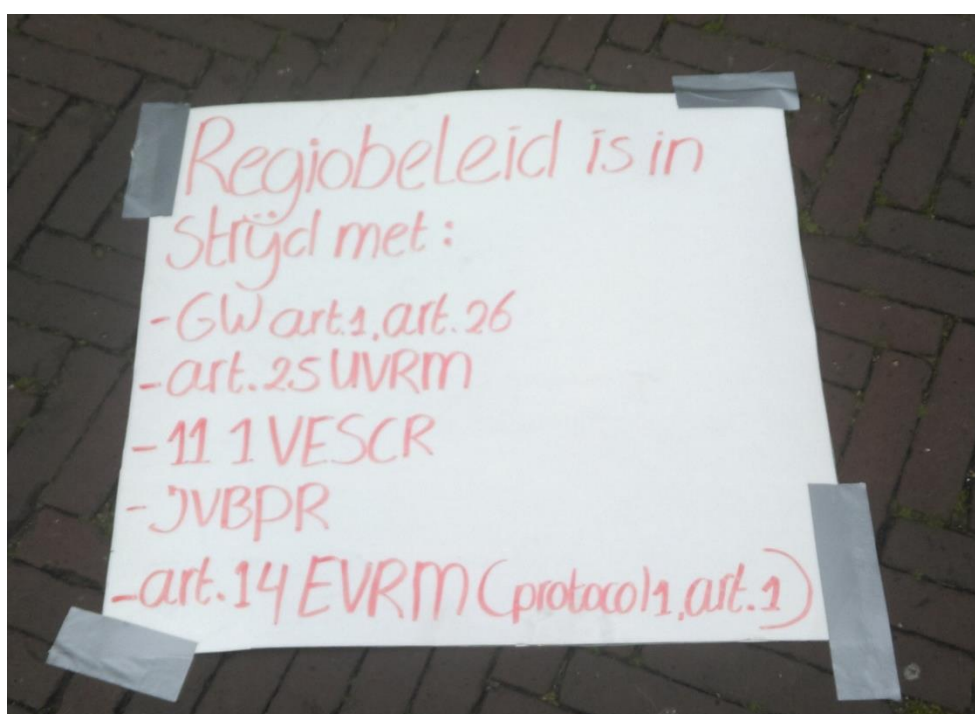 Regiobeleid is in
strijd met:
- GW art.1, art. 26
- art. 25 UVRM
- 11 1 VESCR
- JVBPR
- art. 14 EVRM (protocol 1, art. 1)